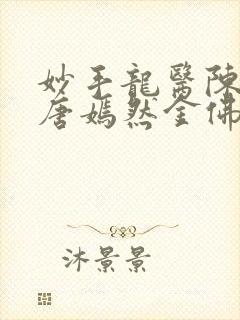 妙手龍醫陳
唐嫣然全佛
沐景景